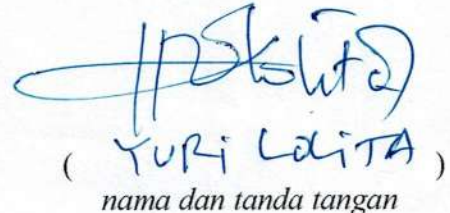 ( YURi LOLiTA )
nama dan tanda tangan